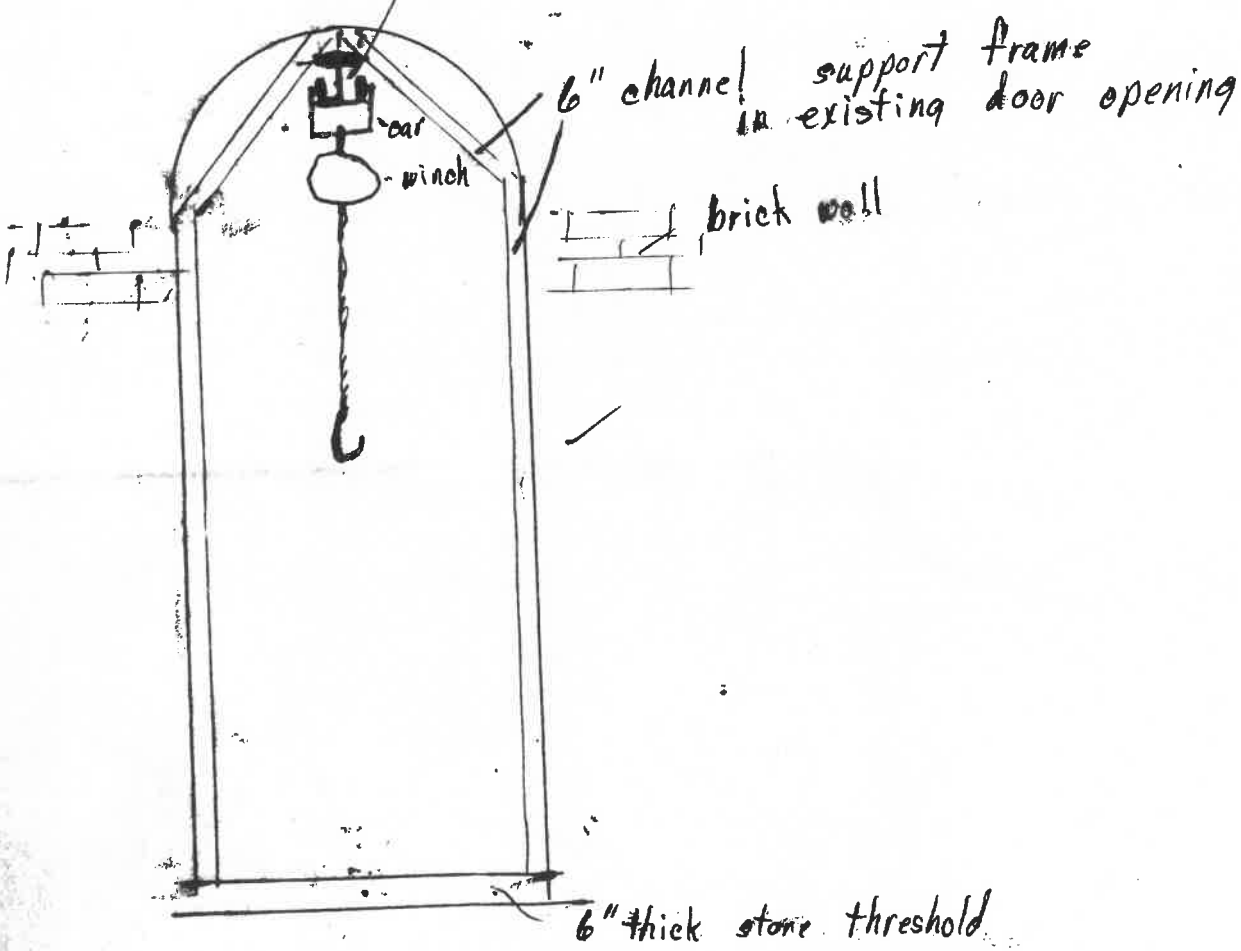 6" channel support frame
in existing door opening
car
winch
brick wall
6" thick stone threshold